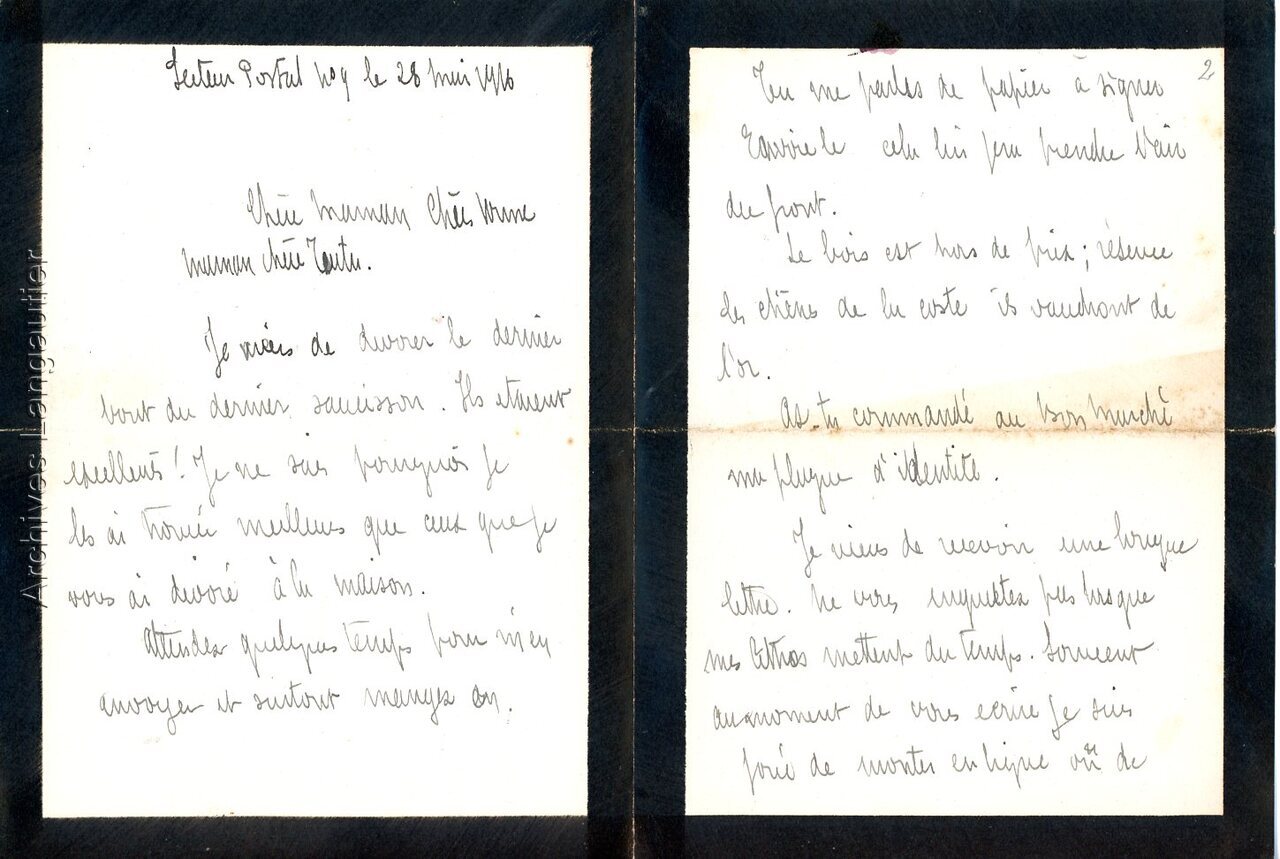 Secteur Postal No 9 le 28 mai 1916
Chère Maman Chère bonne
maman chère Tantu.
Je viens de dévorer le dernier
bout du dernier saucisson. Ils étaient
excellents! Je ne sais pourquoi je
les ai trouvé meilleurs que ceux que je
vous ai dévoré à la maison.
Attendez quelques temps pour m'en
envoyer et surtout mangez en.
2
Tu me parles de papier à signer
Envoie le cela lui fera prendre l'air
du front.
Le bois est hors de prix ; réserve
les chênes de la coste ils vaudront de
l'or.
As-tu commandé au bon marché
ma plaque d'identité.
Je viens de recevoir une longue
lettre. Ne vous inquietez pas lorsque
mes lettres mettent du temps. Souvent
au moment de vous ecrire je suis
forcé de monter en ligne ou de
Archives Langautier